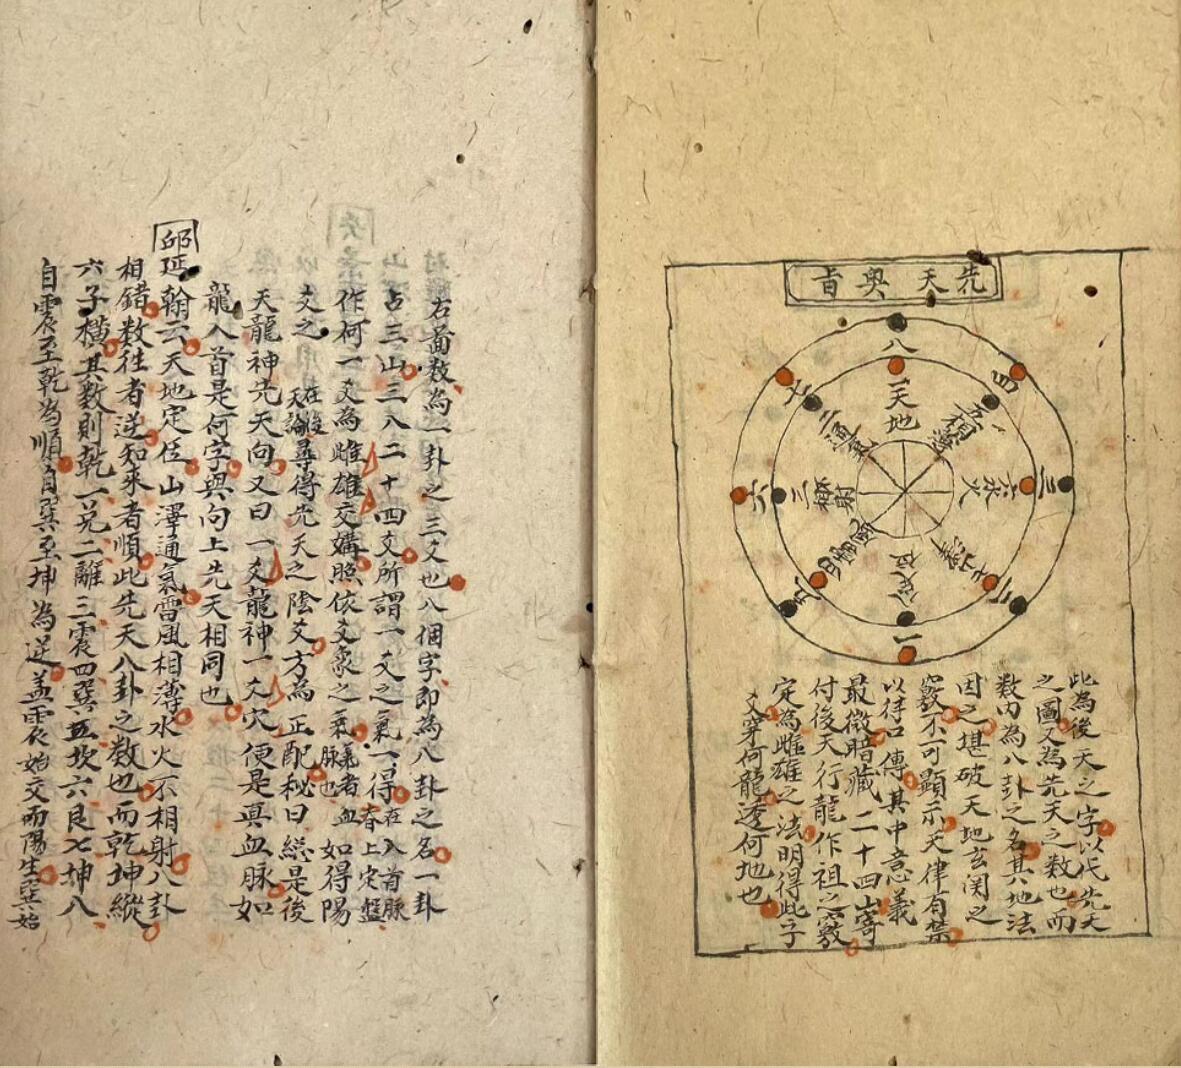 先天奧旨
八
四
三
二
一
九
六
七
天地
定位
山澤
通氣
雷風
相薄
水火
不
相射
此為後天之字以代先天
之圖又為先天之数也而
数内為八卦之名其地法
因之堪破天地玄関之
竅不可顯示天律有禁
以待口傳其中意義
最微暗藏二十四山寄
付後天行龍作祖之竅
定為雌雄之法明得此子
父穿何龍透何地也
右啚数為一卦之三爻也八個字即為八卦之名一卦
占三山三八二十四爻所謂一爻之氣一得在入首脉脊上定盤
作何一爻為雌雄交媾照依爻象之氣氣者血脉也如得陽
爻之在後天論尋得先天之陰爻方為正配秘曰總是後
天龍神先天向又曰一爻龍神一爻穴便是真血脉如
龍入首是何字與向上先天相同也
邱延翰云天地定位山澤通氣雷風相薄水火不相射八卦
相錯数往者逆知來者順此先天八卦之数也而乾坤縱
六子橫其数則乾一兑二離三震四巽五坎六艮七坤八
自震至乾為順自巽至坤為逆盖震始交而陽生巽始